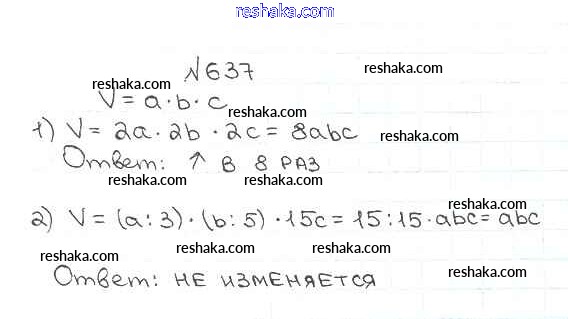 reshaka.com
№637
reshaka.com
reshaka.com
V = a · b · c
reshaka.com
1) V = 2a · 2b · 2c = 8abc
reshaka.com
Ответ: ↑ в 8 раз
reshaka.com reshaka.com
reshaka.com
2) V = (a : 3) · (b : 5) · 15c = 15 : 15 · abc = abc
reshaka.com reshaka.com reshaka.com
Ответ: не изменяется
reshaka.com